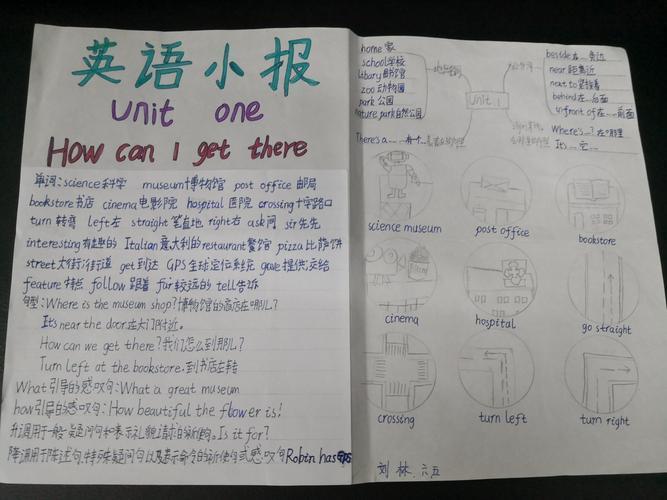 英语小报
unit one
How can I get there
单词:science科学 museum博物馆 post office 邮局
bookstore书店 cinema电影院 hospital 医院 crossing十字路口
turn 转弯 left左 straight笔直地 right右 ask问 sir先生
interesting有趣的 Italian意大利的restaurant餐馆 pizza比萨饼
street大街;街道 get到达 GPS全球定位系统 gave提供;交给
feature特点 follow跟着 far较远的 tell告诉
句型:Where is the museum shop?博物馆的商店在哪儿?
It's near the door.在大门附近。
How can we get there?我们怎么到那儿?
Turn left at the bookstore.到书店左转
What引导的感叹句:What a great museum
how引导的感叹句:How beautiful the flower is!
升调用于一般疑问句和表示礼貌请求的祈使句。Is it for?
降调用于陈述句、特殊疑问句以及表示命令的祈使句或感叹句 Robin has GPS
home 家
school学校
libary图书馆
zoo 动物园
park 公园
nature park自然公园
There's a
unit 1
beside在...旁边
near 距离近
next to紧挨着
behind在...后面
in front of在...前面
Where's...?在哪里
It's...它...
science museum
post office
bookstore
cinema
hospital
go straight
crossing
turn left
turn right
刘林 六五